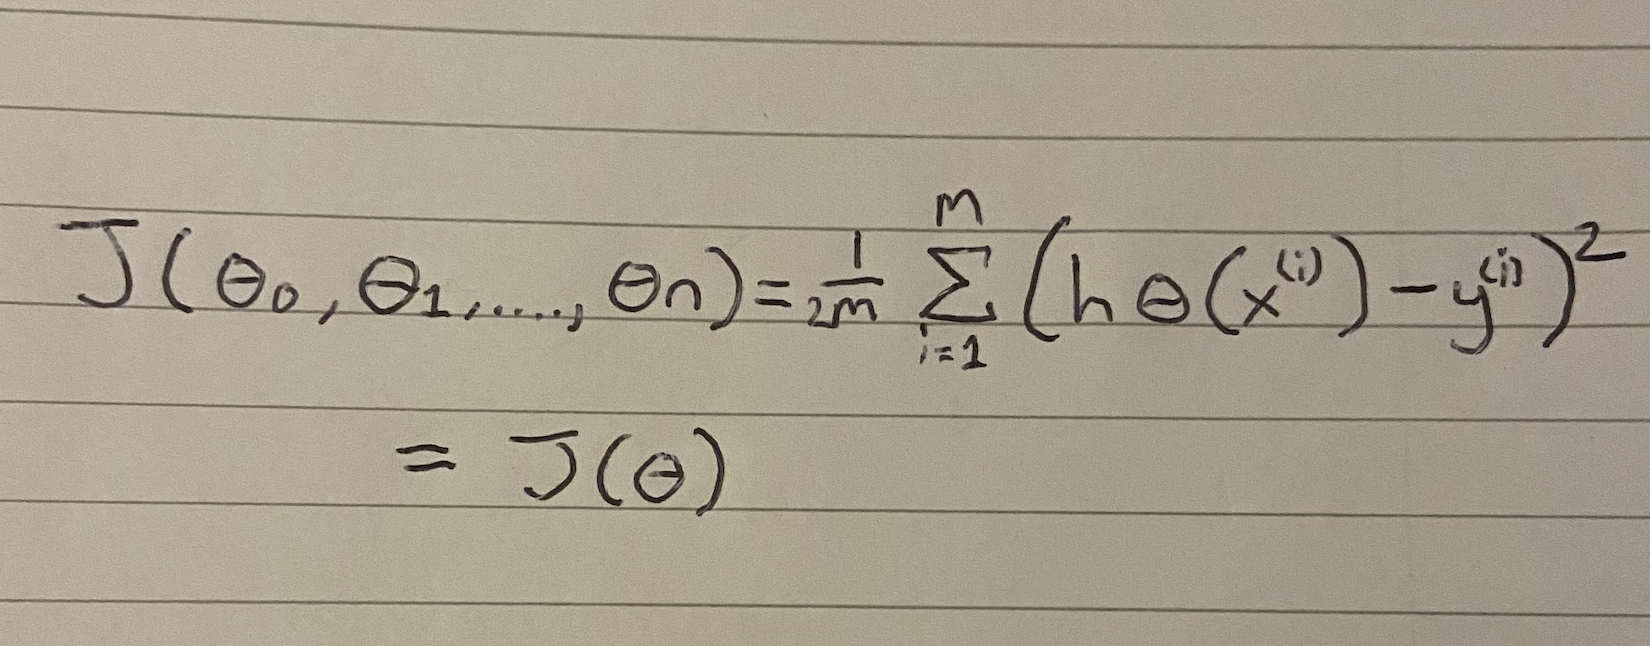 J(θ₀, θ₁, ....., θn) = 1/2m ∑ᵢ₌₁ᵐ (hθ(x⁽ⁱ⁾) − y⁽ⁱ⁾)²
= J(θ)